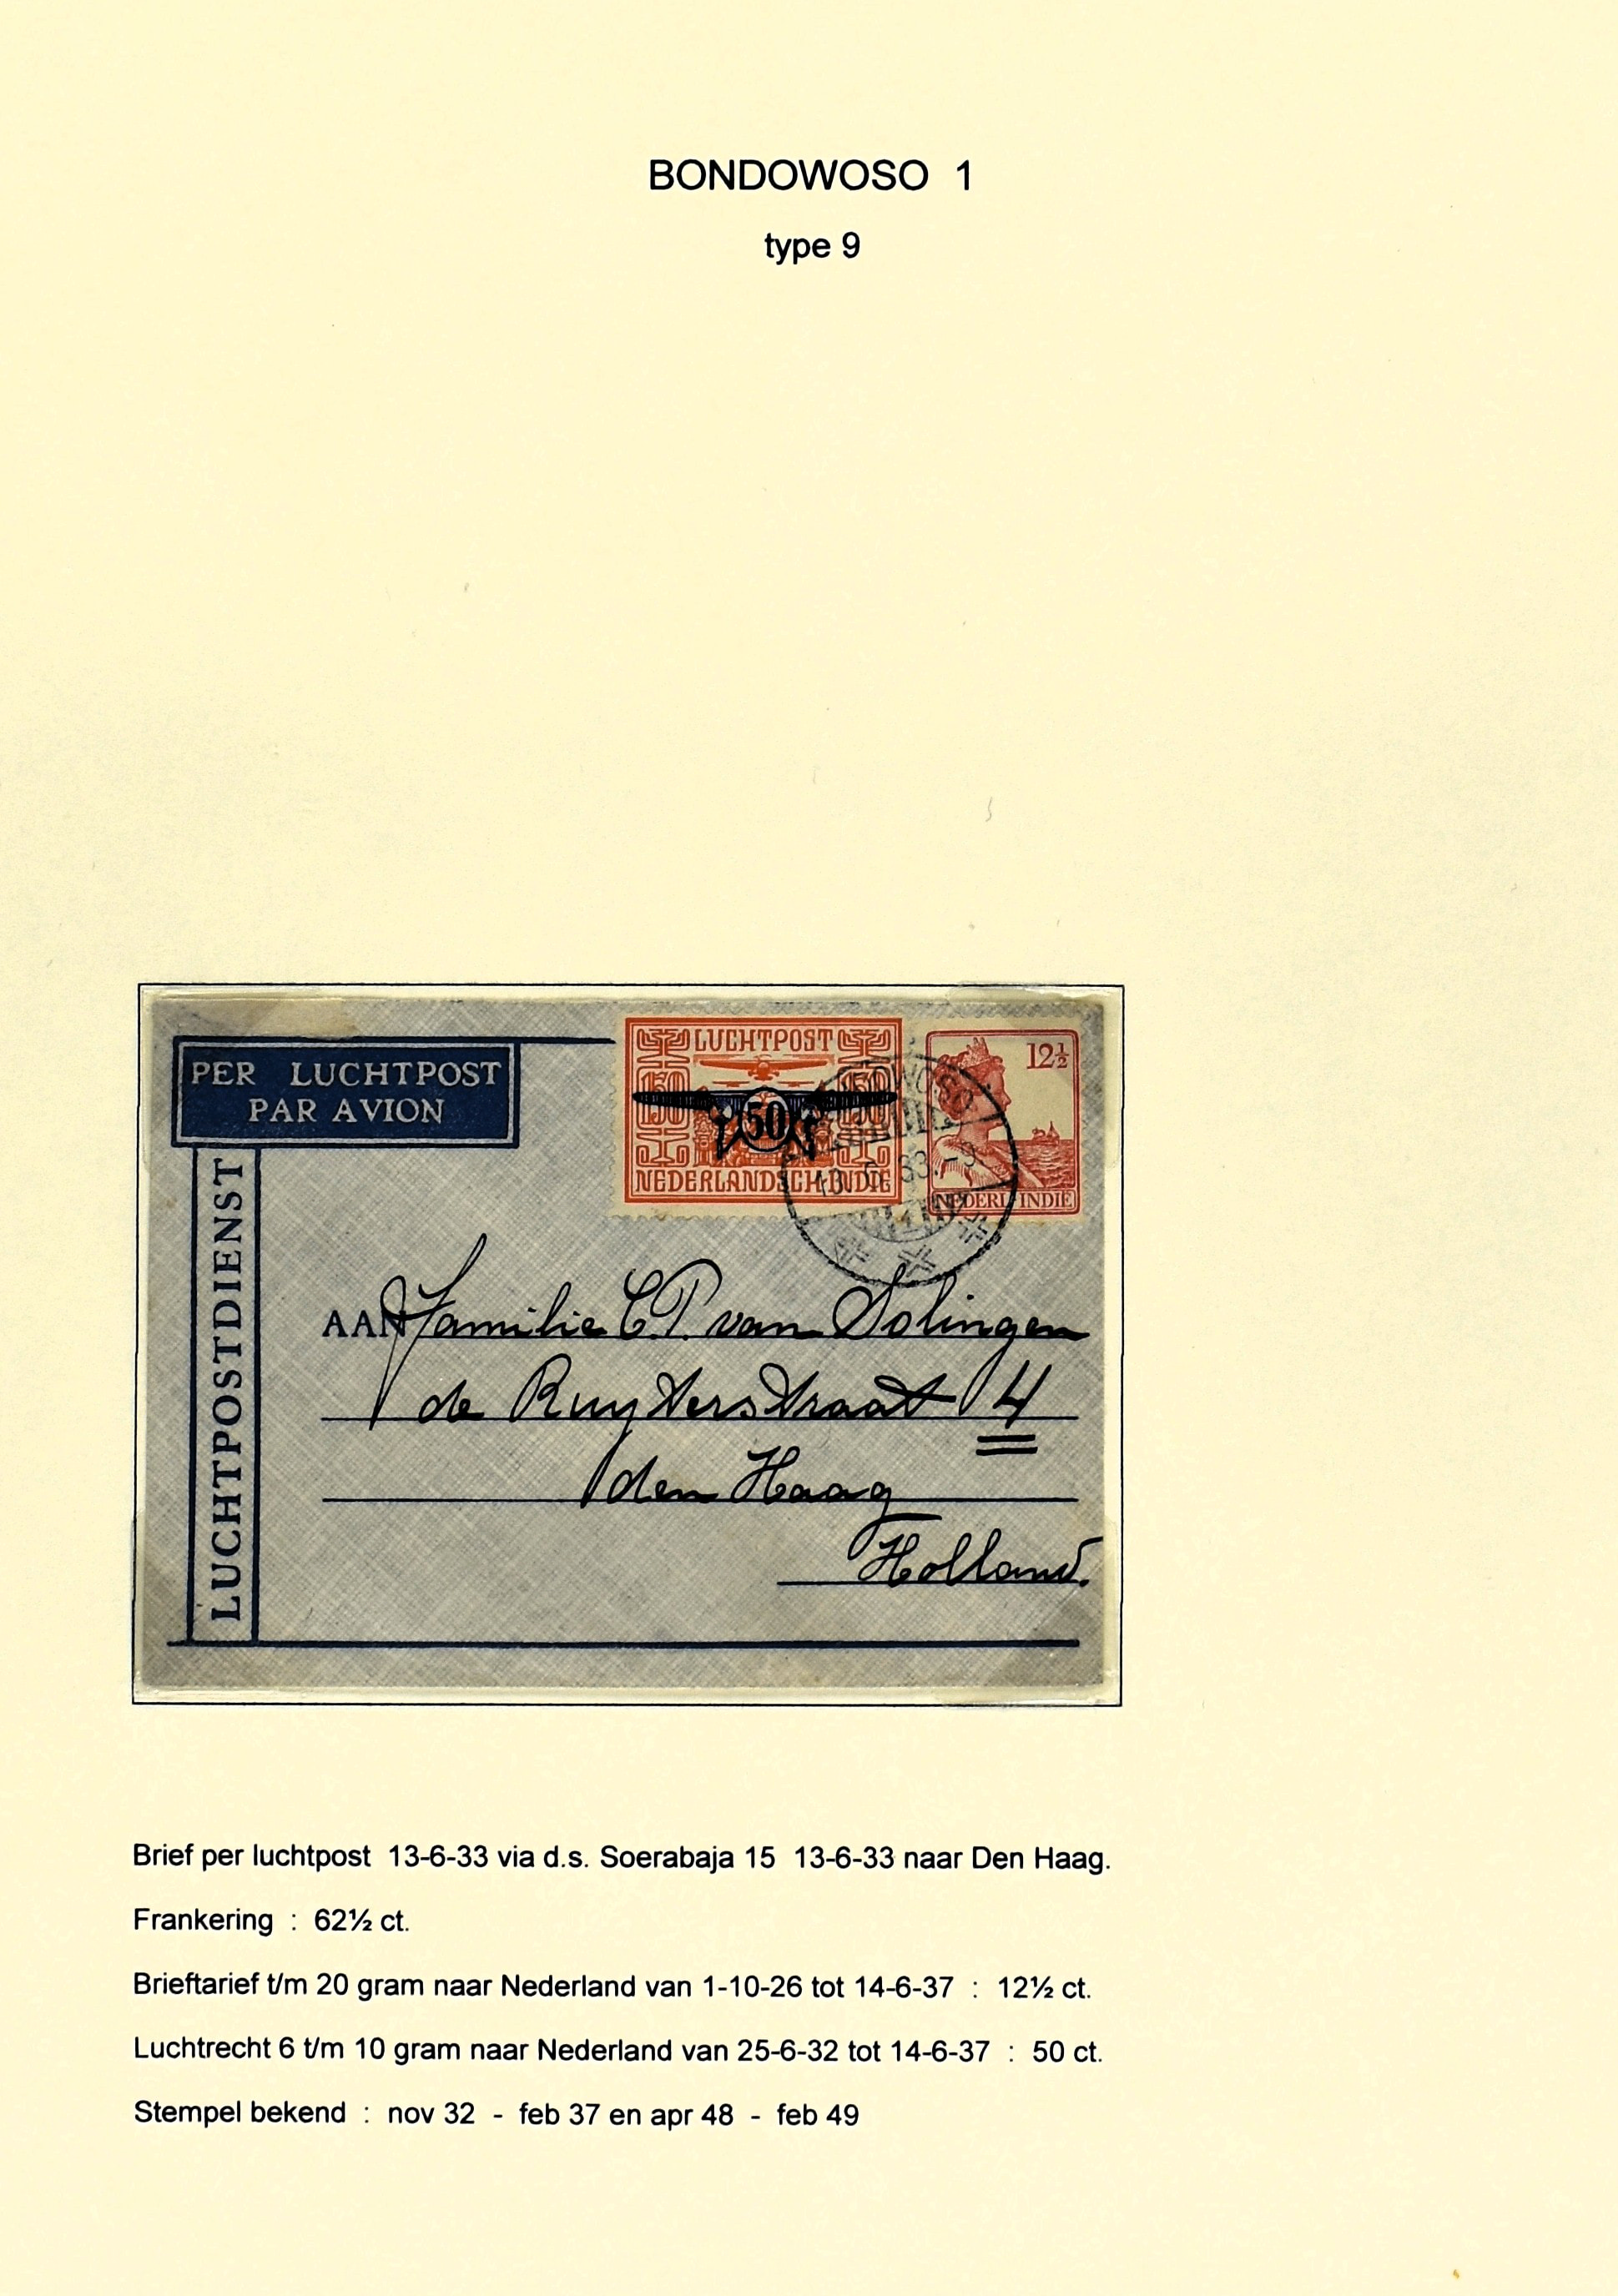 BONDOWOSO 1
type 9
PER LUCHTPOST
PAR AVION
LUCHTPOSTDIENST
LUCHTPOST
150 150
50
NEDERLANDSCH INDIE
12½
NEDERL INDIE
BONDOWOSO
13.6.33.-9
AAN Familie C.P. van Solingen
de Ruyterstraat 4
den Haag
Holland.
Brief per luchtpost 13-6-33 via d.s. Soerabaja 15 13-6-33 naar Den Haag.
Frankering : 62½ ct.
Brieftarief t/m 20 gram naar Nederland van 1-10-26 tot 14-6-37 : 12½ ct.
Luchtrecht 6 t/m 10 gram naar Nederland van 25-6-32 tot 14-6-37 : 50 ct.
Stempel bekend : nov 32 - feb 37 en apr 48 - feb 49